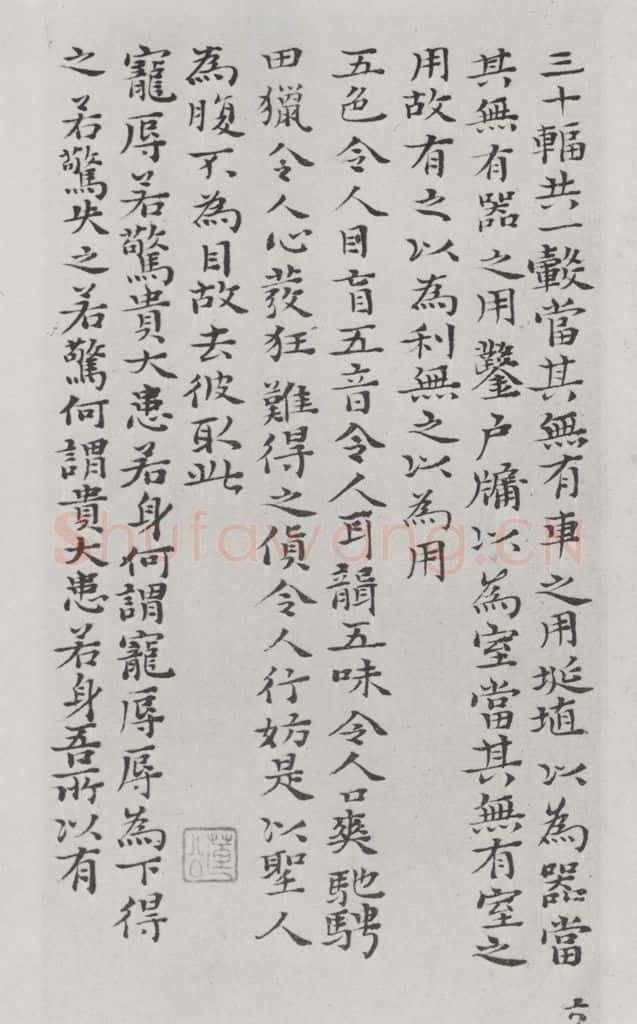 三十輻共一轂當其無有車之用埏埴以為器當
其無有器之用鑿户牖以為室當其無有室之
用故有之以為利無之以為用
五色令人目盲五音令人耳聾五味令人口爽馳騁
田獵令人心發狂難得之貨令人行妨是以聖人
為腹不為目故去彼取此
寵辱若驚貴大患若身何謂寵辱辱為下得
之若驚失之若驚何謂貴大患若身吾所以有
Shufawang.CN